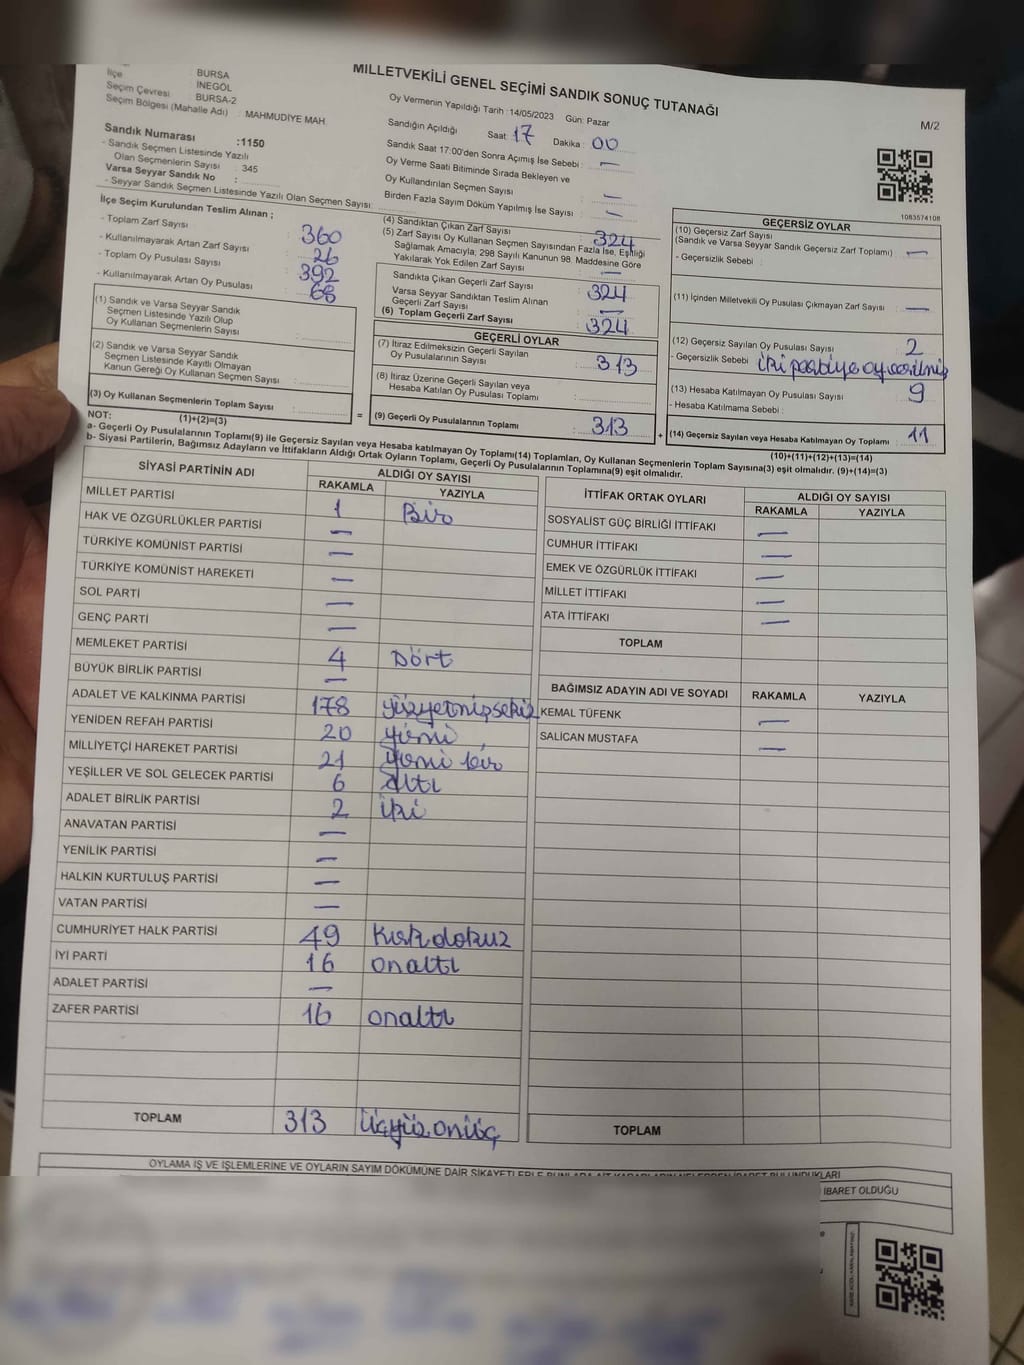 MİLLETVEKİLİ GENEL SEÇİMİ SANDIK SONUÇ TUTANAĞI
M/2
İlçe : BURSA
İNEGÖL
Seçim Çevresi : BURSA-2
Seçim Bölgesi (Mahalle Adı) : MAHMUDİYE MAH.
Sandık Numarası :1150
- Sandık Seçmen Listesinde Yazılı
Olan Seçmenlerin Sayısı : 345
Varsa Seyyar Sandık No :
- Seyyar Sandık Seçmen Listesinde Yazılı Olan Seçmen Sayısı:
Oy Vermenin Yapıldığı Tarih :14/05/2023 Gün: Pazar
Sandığın Açıldığı Saat: 17 Dakika : 00
Sandık Saat 17:00'den Sonra Açımış İse Sebebi : —
Oy Verme Saati Bitiminde Sırada Bekleyen ve
Oy Kullandırılan Seçmen Sayısı : —
Birden Fazla Sayım Döküm Yapılmış İse Sayısı : —
1083574108
İlçe Seçim Kurulundan Teslim Alınan ;
- Toplam Zarf Sayısı : 360
- Kullanılmayarak Artan Zarf Sayısı : 26
- Toplam Oy Pusulası Sayısı : 392
- Kullanılmayarak Artan Oy Pusulası : 68
(1) Sandık ve Varsa Seyyar Sandık
Seçmen Listesinde Yazılı Olup
Oy Kullanan Seçmenlerin Sayısı :
(2) Sandık ve Varsa Seyyar Sandık
Seçmen Listesinde Kayıtlı Olmayan
Kanun Gereği Oy Kullanan Seçmen Sayısı :
(3) Oy Kullanan Seçmenlerin Toplam Sayısı :
(1)+(2)=(3)
(4) Sandıktan Çıkan Zarf Sayısı : 324
(5) Zarf Sayısı Oy Kullanan Seçmen Sayısından Fazla İse, Eşitliği
Sağlamak Amacıyla; 298 Sayılı Kanunun 98. Maddesine Göre
Yakılarak Yok Edilen Zarf Sayısı : —
Sandıkta Çıkan Geçerli Zarf Sayısı : 324
Varsa Seyyar Sandıktan Teslim Alınan
Geçerli Zarf Sayısı : —
(6) Toplam Geçerli Zarf Sayısı : 324
GEÇERLİ OYLAR
(7) İtiraz Edilmeksizin Geçerli Sayılan
Oy Pusulalarının Sayısı : 313
(8) İtiraz Üzerine Geçerli Sayılan veya
Hesaba Katılan Oy Pusulası Toplamı :
= (9) Geçerli Oy Pusulalarının Toplamı : 313 +
GEÇERSİZ OYLAR
(10) Geçersiz Zarf Sayısı
(Sandık ve Varsa Seyyar Sandık Geçersiz Zarf Toplamı) : —
- Geçersizlik Sebebi :
(11) İçinden Milletvekili Oy Pusulası Çıkmayan Zarf Sayısı : —
(12) Geçersiz Sayılan Oy Pusulası Sayısı : 2
- Geçersizlik Sebebi : iki partiye oy verilmiş
(13) Hesaba Katılmayan Oy Pusulası Sayısı : 9
- Hesaba Katılmama Sebebi :
(14) Geçersiz Sayılan veya Hesaba Katılmayan Oy Toplamı : 11
(10)+(11)+(12)+(13)=(14)
NOT:
a- Geçerli Oy Pusulalarının Toplamı(9) ile Geçersiz Sayılan veya Hesaba katılmayan Oy Toplamı(14) Toplamları, Oy Kullanan Seçmenlerin Toplam Sayısına(3) eşit olmalıdır. (9)+(14)=(3)
b- Siyasi Partilerin, Bağımsız Adayların ve İttifakların Aldığı Ortak Oyların Toplamı, Geçerli Oy Pusulalarının Toplamına(9) eşit olmalıdır.
SİYASİ PARTİNİN ADI ALDIĞI OY SAYISI
RAKAMLA YAZIYLA
MİLLET PARTİSİ 1 Bir
HAK VE ÖZGÜRLÜKLER PARTİSİ —
TÜRKİYE KOMÜNİST PARTİSİ —
TÜRKİYE KOMÜNİST HAREKETİ —
SOL PARTİ —
GENÇ PARTİ —
MEMLEKET PARTİSİ 4 Dört
BÜYÜK BİRLİK PARTİSİ —
ADALET VE KALKINMA PARTİSİ 178 yüzyetmişsekiz
YENİDEN REFAH PARTİSİ 20 yirmi
MİLLİYETÇİ HAREKET PARTİSİ 21 yirmi bir
YEŞİLLER VE SOL GELECEK PARTİSİ 6 Altı
ADALET BİRLİK PARTİSİ 2 iki
ANAVATAN PARTİSİ —
YENİLİK PARTİSİ —
HALKIN KURTULUŞ PARTİSİ —
VATAN PARTİSİ —
CUMHURİYET HALK PARTİSİ 49 Kırkdokuz
İYİ PARTİ 16 onaltı
ADALET PARTİSİ —
ZAFER PARTİSİ 16 onaltı
TOPLAM 313 üçyüzonüç
İTTİFAK ORTAK OYLARI ALDIĞI OY SAYISI
RAKAMLA YAZIYLA
SOSYALİST GÜÇ BİRLİĞİ İTTİFAKI —
CUMHUR İTTİFAKI —
EMEK VE ÖZGÜRLÜK İTTİFAKI —
MİLLET İTTİFAKI —
ATA İTTİFAKI —
TOPLAM
BAĞIMSIZ ADAYIN ADI VE SOYADI RAKAMLA YAZIYLA
KEMAL TÜFENK —
SALİCAN MUSTAFA —
TOPLAM
OYLAMA İŞ VE İŞLEMLERİNE VE OYLARIN SAYIM DÖKÜMÜNE DAİR ŞİKAYETLERLE BUNLARA AİT KARARLARIN NELERDEN İBARET BULUNDUKLARI
İBARET OLDUĞU